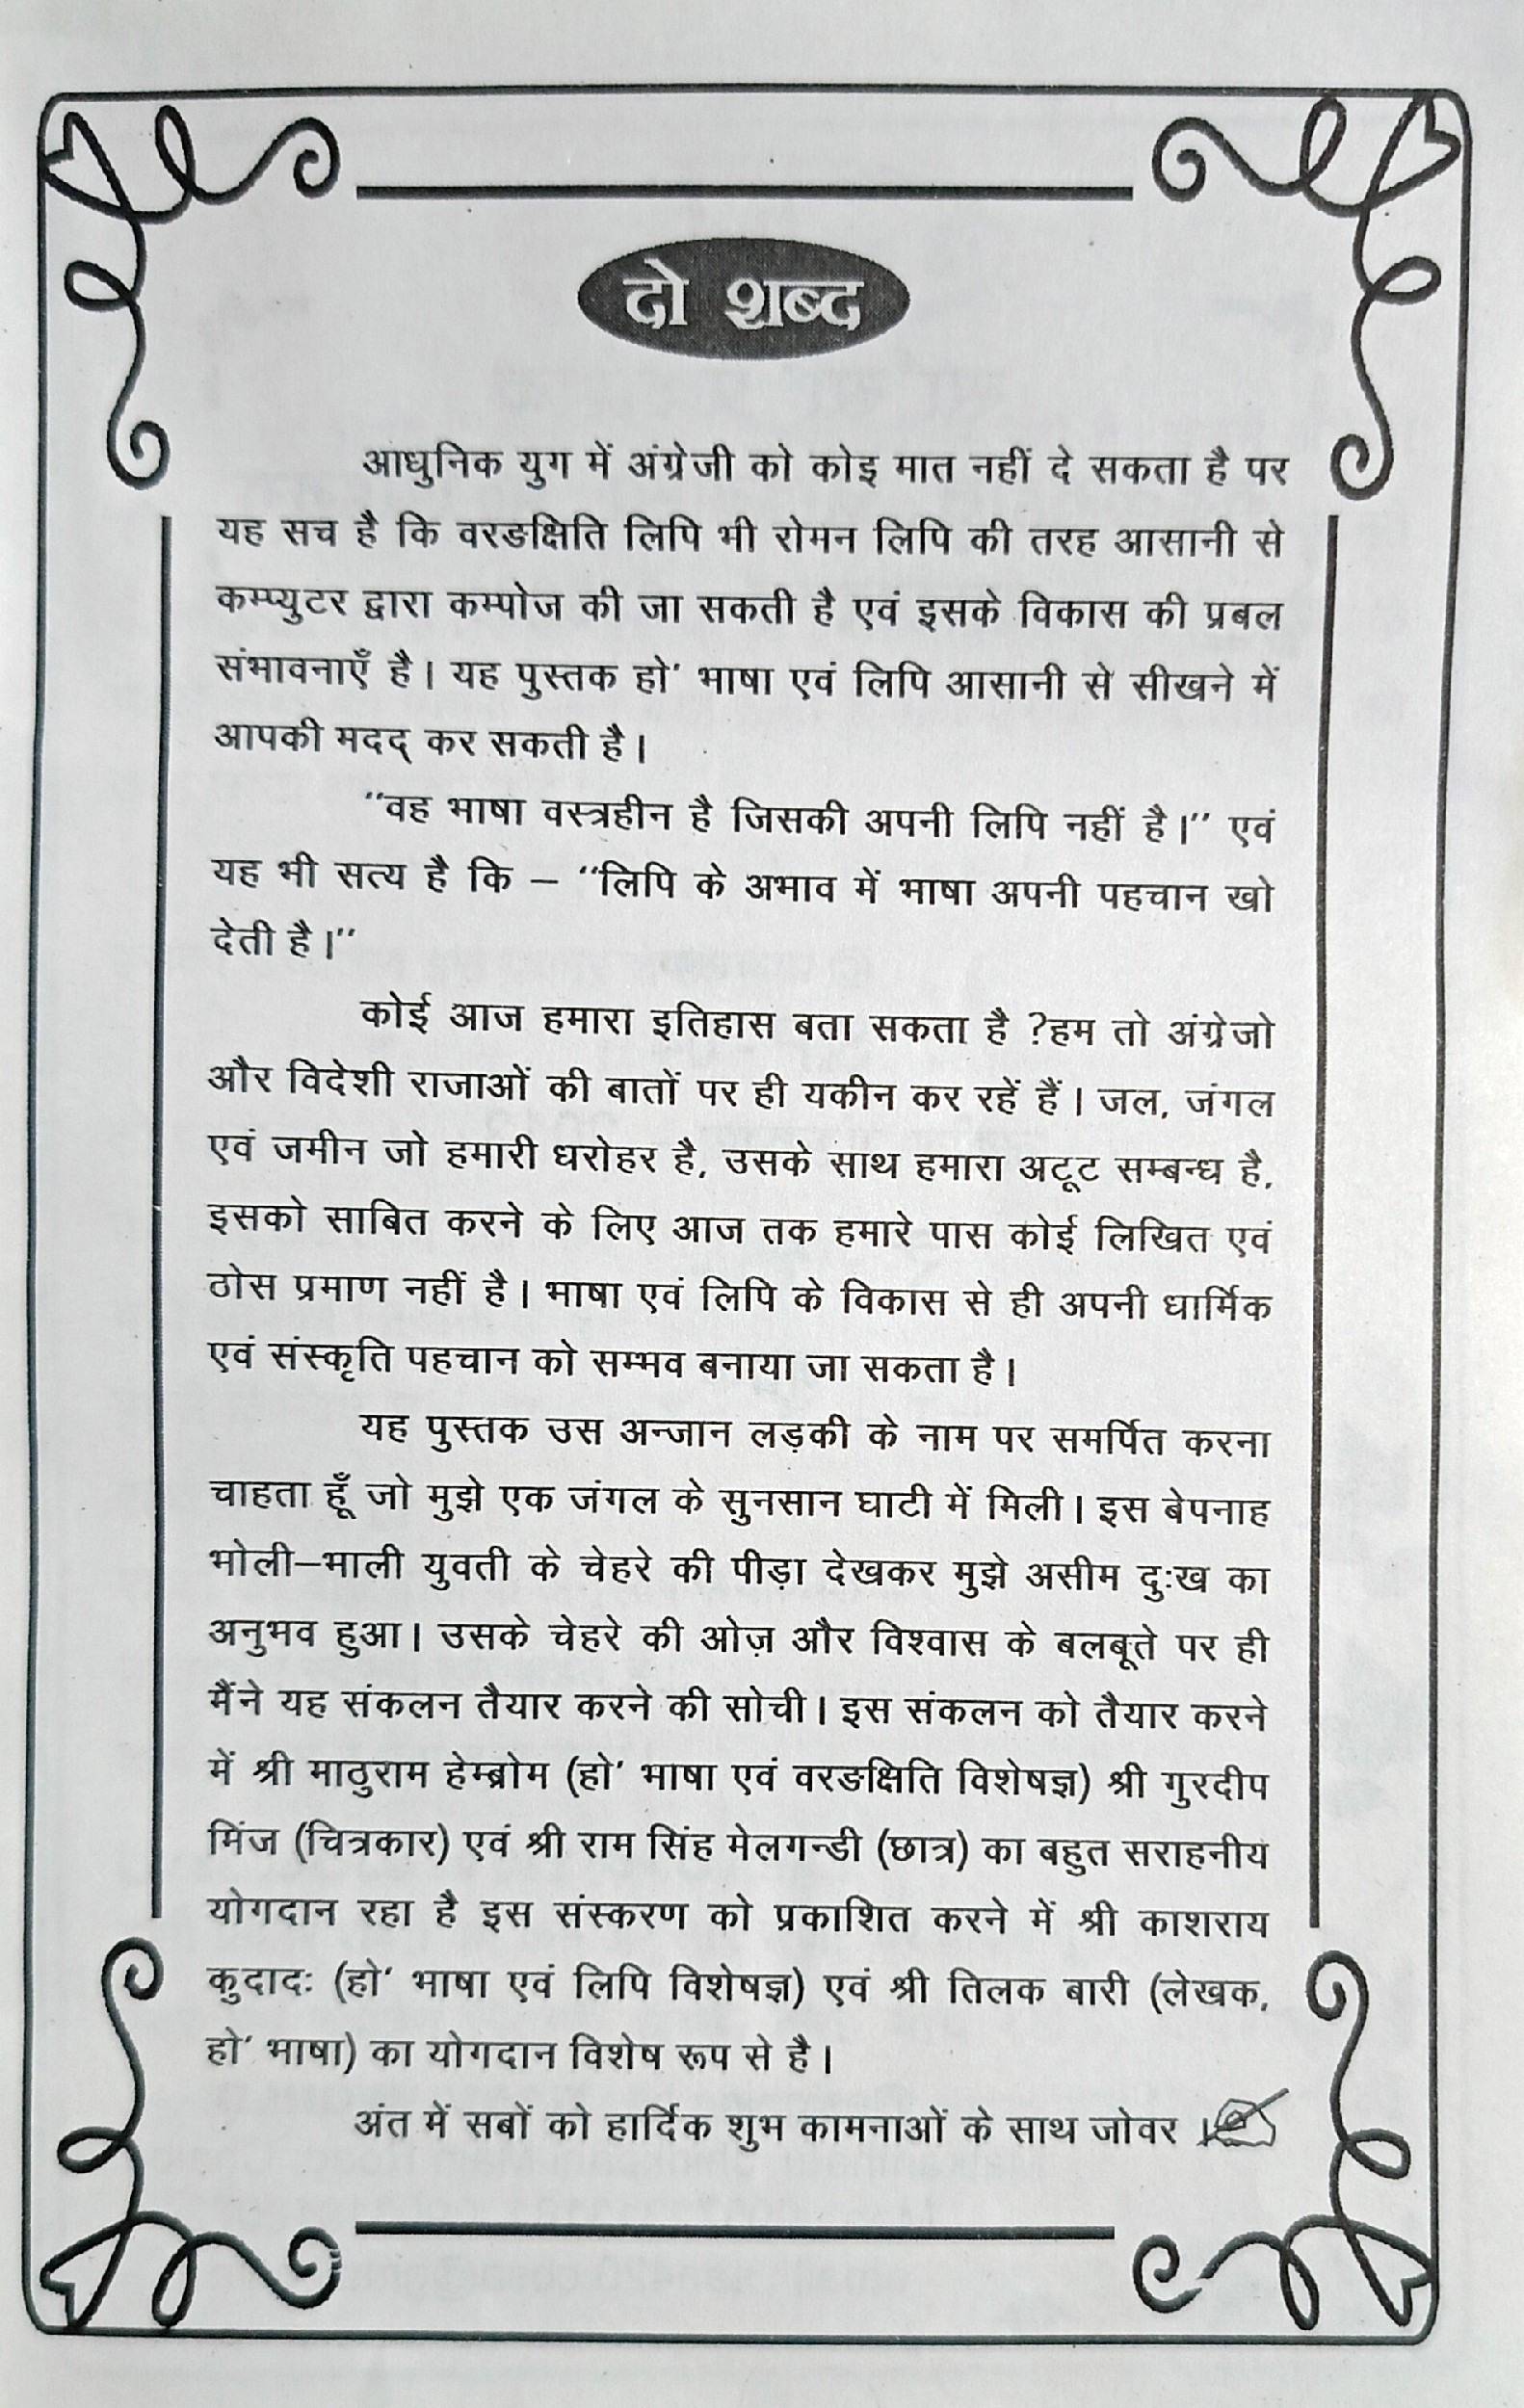 दो शब्द
आधुनिक युग में अंग्रेजी को कोइ मात नहीं दे सकता है पर
यह सच है कि वरङक्षिति लिपि भी रोमन लिपि की तरह आसानी से
कम्प्युटर द्वारा कम्पोज की जा सकती है एवं इसके विकास की प्रबल
संभावनाएँ है। यह पुस्तक हो' भाषा एवं लिपि आसानी से सीखने में
आपकी मदद् कर सकती है।
"वह भाषा वस्त्रहीन है जिसकी अपनी लिपि नहीं है।" एवं
यह भी सत्य है कि – "लिपि के अभाव में भाषा अपनी पहचान खो
देती है।"
कोई आज हमारा इतिहास बता सकता है ?हम तो अंग्रेजो
और विदेशी राजाओं की बातों पर ही यकीन कर रहें हैं। जल, जंगल
एवं जमीन जो हमारी धरोहर है, उसके साथ हमारा अटूट सम्बन्ध है,
इसको साबित करने के लिए आज तक हमारे पास कोई लिखित एवं
ठोस प्रमाण नहीं है। भाषा एवं लिपि के विकास से ही अपनी धार्मिक
एवं संस्कृति पहचान को सम्भव बनाया जा सकता है।
यह पुस्तक उस अन्जान लड़की के नाम पर समर्पित करना
चाहता हूँ जो मुझे एक जंगल के सुनसान घाटी में मिली। इस बेपनाह
भोली–भाली युवती के चेहरे की पीड़ा देखकर मुझे असीम दुःख का
अनुभव हुआ। उसके चेहरे की ओज़ और विश्वास के बलबूते पर ही
मैंने यह संकलन तैयार करने की सोची। इस संकलन को तैयार करने
में श्री माठुराम हेम्ब्रोम (हो' भाषा एवं वरङक्षिति विशेषज्ञ) श्री गुरदीप
मिंज (चित्रकार) एवं श्री राम सिंह मेलगन्डी (छात्र) का बहुत सराहनीय
योगदान रहा है इस संस्करण को प्रकाशित करने में श्री काशराय
कुदादः (हो' भाषा एवं लिपि विशेषज्ञ) एवं श्री तिलक बारी (लेखक,
हो' भाषा) का योगदान विशेष रूप से है।
अंत में सबों को हार्दिक शुभ कामनाओं के साथ जोवर ।